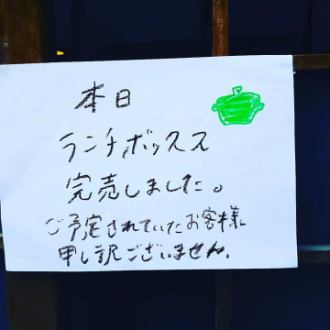 本日
ランチボックス
完売しました。
ご予定されていたお客様
申し訳ございません。